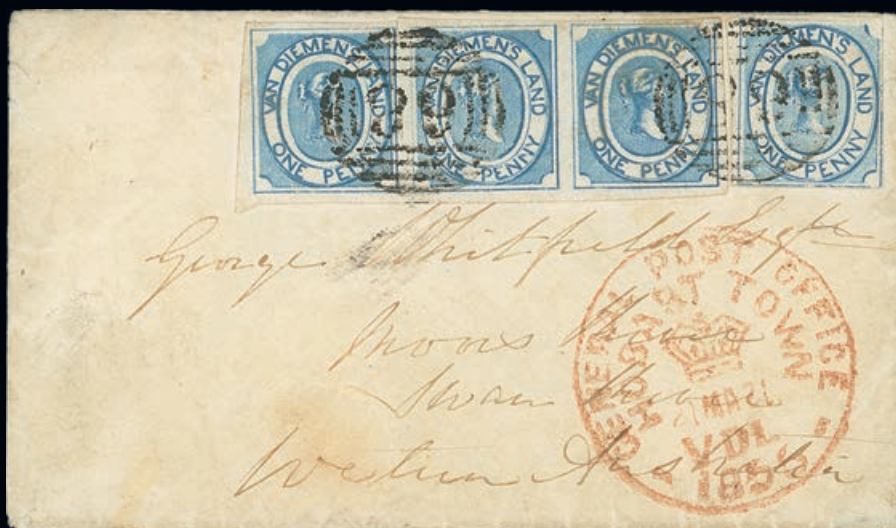 VAN DIEMEN'S LAND ONE PENNY
VAN DIEMEN'S LAND ONE PENNY
VAN DIEMEN'S LAND ONE PENNY
VAN DIEMEN'S LAND ONE PENNY
George Whitfield Esqre
Swan River
Western Australia
GENERAL POST OFFICE
HOBART TOWN
V.D.L.